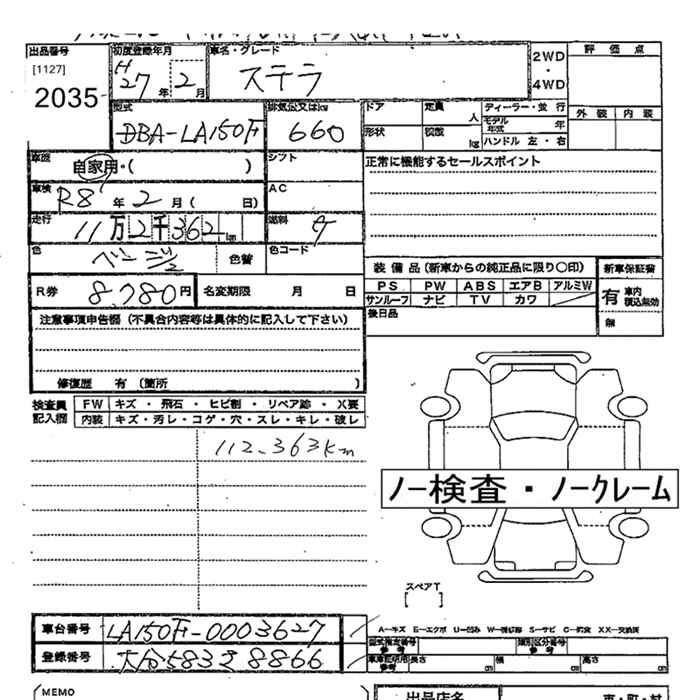 出品番号 初度登録年月 車名・グレード 評価点
[1127] H 27年 2月 ステラ 2WD・4WD
2035
型式 排気量又はkg ドア 定員 人 ディーラー・並行 外装 内装
DBA-LA150F 660 形状 積載 kg モデル年式 年
ハンドル 左・右
車歴 自家用・( ) シフト 正常に機能するセールスポイント
車検 R8年 2月( 日) AC
走行 11万2千362km 燃料 ガ
色 色替 色コード
装備品(新車からの純正品に限り〇印) 新車保証書
R券 8,780円 名変期限 月 日 PS PW ABS エアB アルミW 有 車内積込無効
サンルーフ ナビ TV カワ
後日品 無
注意事項申告欄(不具合内容等は具体的に記入して下さい)
修復歴 有(箇所 )
検査員記入欄 FW キズ・飛石・ヒビ割・リペア跡・X要
内装 キズ・汚レ・コゲ・穴・スレ・キレ・破レ
112,363km
ノー検査・ノークレーム
スペアT
[ ]
車台番号 LA150F-0003627 A-キズ E-エクボ U-凹み W-補修跡 S-サビ C-腐食 XX-交換済
型式指定番号 参考 類別区分番号 参考
登録番号 大分583き8866 車庫証明用 参考 長さ cm 幅 cm 高さ cm
(MEMO 出品店名 市・町・村